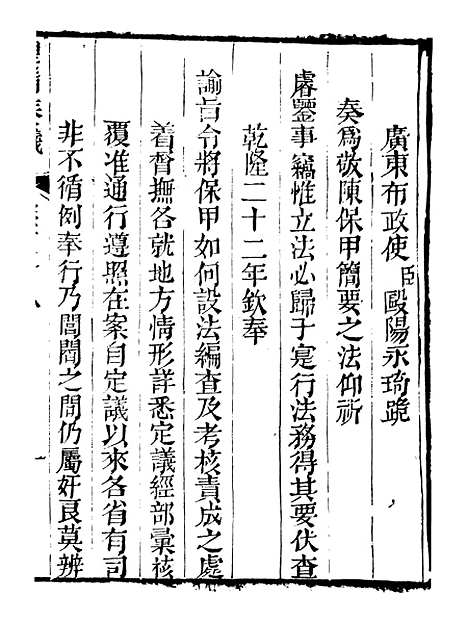 廣東布政使臣歐陽永𤦺跪
奏爲敬陳保甲簡要之法仰祈
睿鑒事竊惟立法必歸于寔行法務得其要伏查
乾隆二十二年欽奉
諭旨令將保甲如何設法編查及考核責成之處
着督撫各就地方情形詳悉定議經部彙核
覆准通行遵照在案自定議以來各省有司
非不循例奉行乃閭閻之間仍屬奸良莫辨